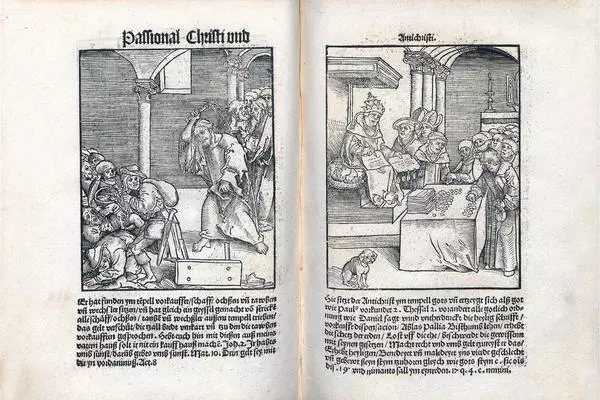 Passional Christi und
Er hat funden ym tēpell vorkauffer/ schaff/ ochßen uñ tawben
uñ wechsler sitzen/ uñ hat gleich ein geyssel gemacht võ stricke
alle schaff/ ochßen/ taubē uñ wechßler außem tempell trieben/
das gelt verschüt/ die zall brede umkart uñ tzu den die tawben
vorkaufften gesprochen. Hebt euch hin mit dießen auß meins
vatern hauß solt ir nit ein kauff hauß machē. Joh. 2. Ir habts
umb sunst/ darüb gebts umb sunst. Mat. 10. Dein gelt sey mit
dir yn vordamnuß. Act. 8
Antichristi.
Hie sitzt der Antichrist ym tempell gots uñ ertzeygt sich als got
wie Paulus vorkundet 2. Thessal. 2. vorandert alle gotlich ordnung
wie Daniel sagt und unterdruckt die heylig schrifft/
vorkeufft dispensacion/ Ablas/ Pallia/ Bisthumb/ Lehen/ erhebt
die schetz der erden/ Lost uff die ehe/ beschwerdt die gewissenn
mit seynen gesetzen/ Macht recht und umb gelt zureyst er das/
Erhebt heyligen/ Benedeyet uñ maledeyet yns vierde geschlecht
uñ gebewt seyn stym tzuhoren gleych wie gots stym c. sic oīs
dis. 19 und niemants sall ym eynreden. 17. q. 4. c. nemini.